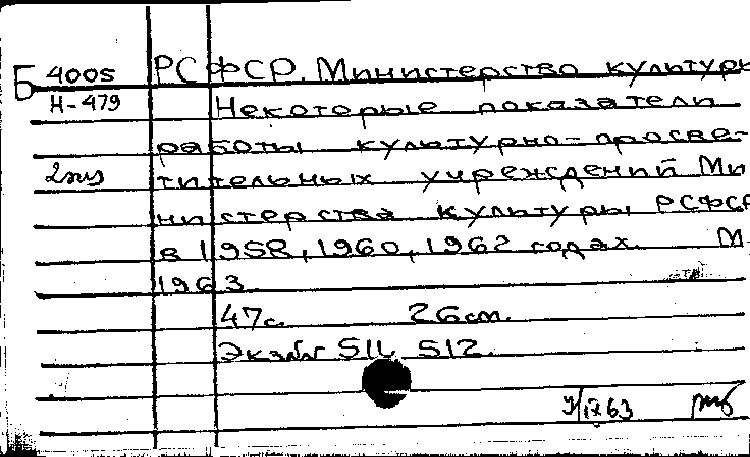 Б 4005 РСФСР. Министерство культуры
Н-479 Некоторые показатели
работы культурно-просве-
2экз тительных учреждений Ми
нистерства культуры РСФСР
в 1958, 1960, 1962 годах. М
1963
47с. 26см.
Экз.№№ 511, 512.
63